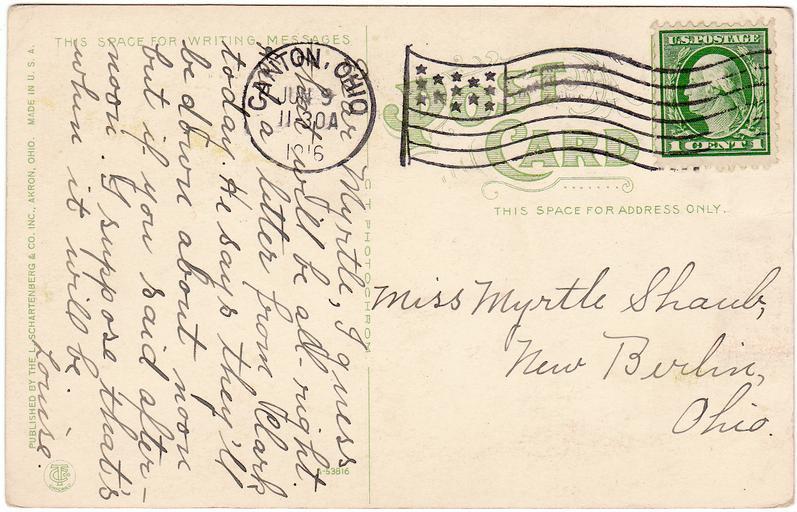 THIS SPACE FOR WRITING MESSAGES
Dear Myrtle, I guess
that will be all-right.
Had a letter from Clark
today. He says they'll
be down about noon
but if you said after-
noon. I suppose that's
when it will be.
Louise.
PUBLISHED BY THE L. SCHARTENBERG & CO. INC., AKRON, OHIO. MADE IN U. S. A.
C. T. PHOTOCHROM
A-53816
CANTON, OHIO
JUN 9
11-30A
1916
POST
CARD
U.S. POSTAGE
1 CENT 1
THIS SPACE FOR ADDRESS ONLY.
Miss Myrtle Shaub,
New Berlin,
Ohio.